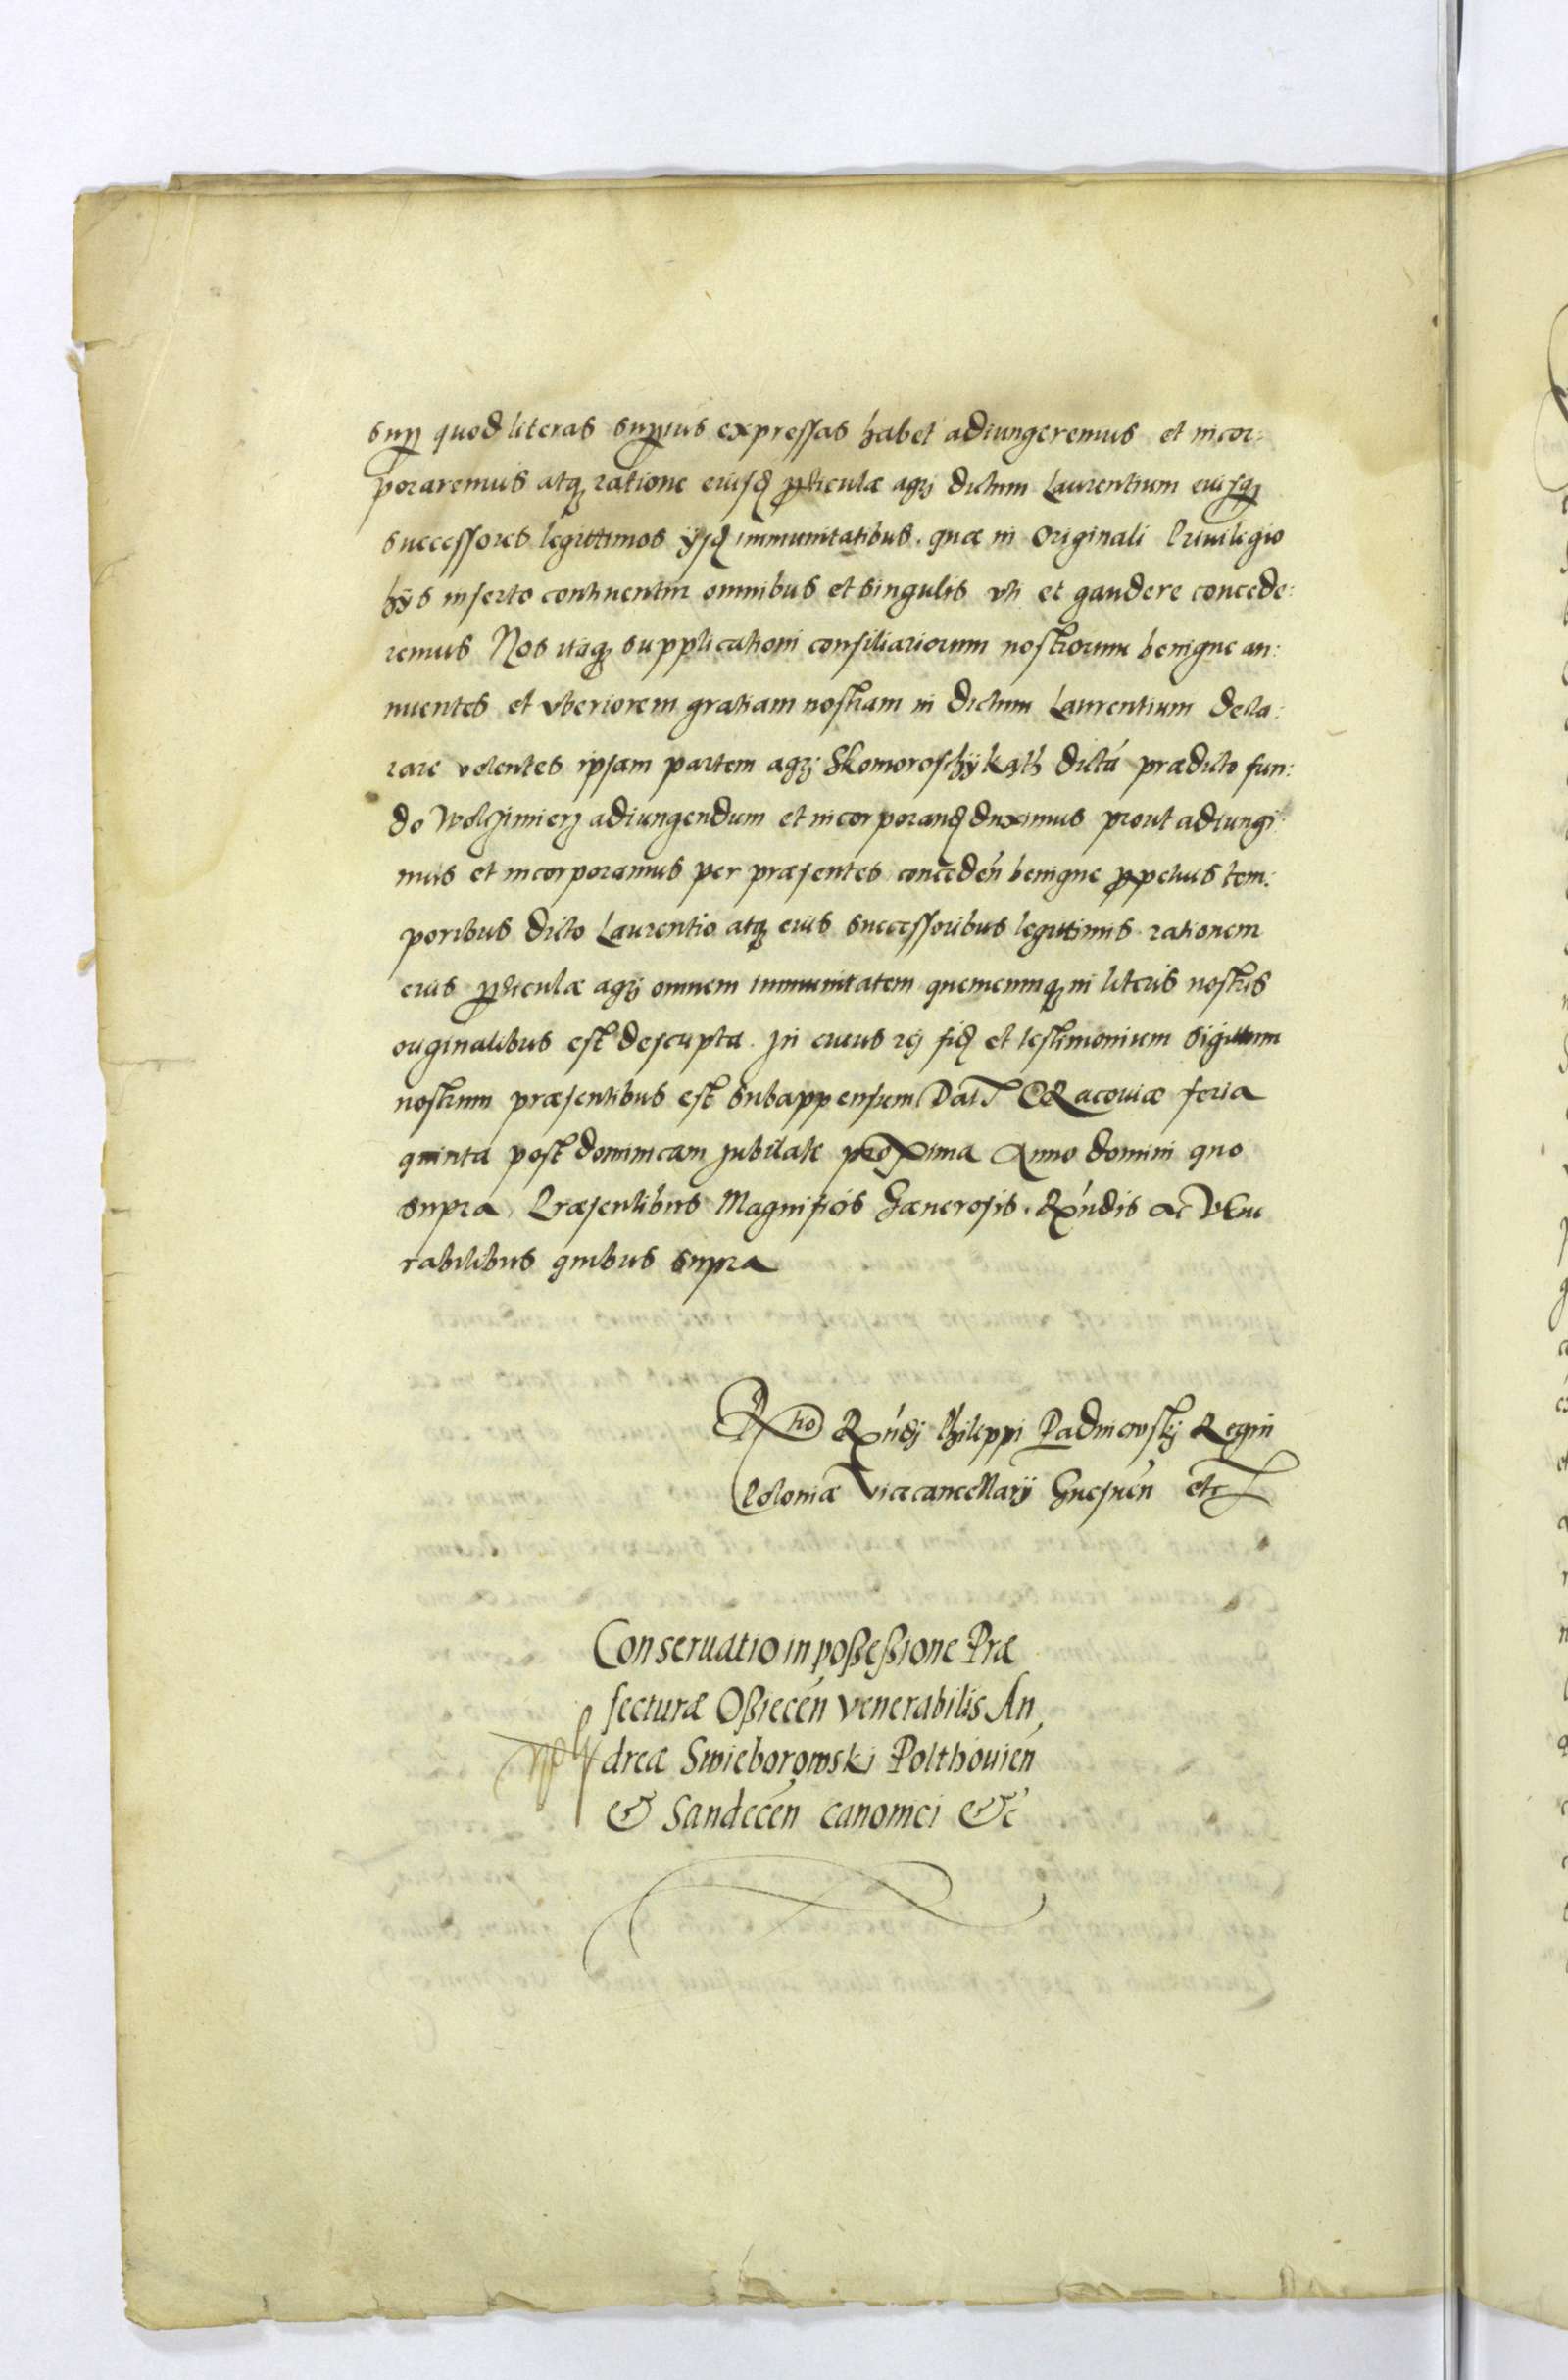 sup quod literas superius expressas habet adiungeremus et incor:
poraremus atq ratione eiusd particulæ agrj dictum Laurentium eiusq
successores legittimos ijsd immunitatibus. quæ in Originali Priuilegio
hijs inserto continentur omnibus et singulis vti et gaudere concede:
remus Nos itaq supplicationi consiliariorum nostrorum benigne an:
nuentes et vberiorem gratiam nostram in dictum Laurentium decla:
rare volentes ipsam partem agrj dictá prædicto fun:
do Wolczimierz adiungendum et incorporand duximus prout adiungi:
mus et incorporamus per præsentes conceden benigne perpetuis tem:
poribus dicto Laurentio atq eius successoribus legittimis rationem
eius particulæ agrj omnem immunitatem quemcumq in literis nostris
originalibus est descripta. In cuius rej fid et testimonium Sigillum
nostrum præsentibus est subappensum Dat CRacouiæ feria
quinta post dominicam Jubilate proxima Anno domini quo
supra, Præsentibus Magnificis Gænerosis. Rńdis ac VEne
rabilibus quibus supra
Rtio Rńdj Philippi Padniewskj Regni
Poloniæ Vicecancellarij Gnesnén etc
Conseruatio in poßeßione Præ
fecturæ Oßiecén venerabilis An
dreæ Swieborowski Polthouién
& Sandecén canonici &c